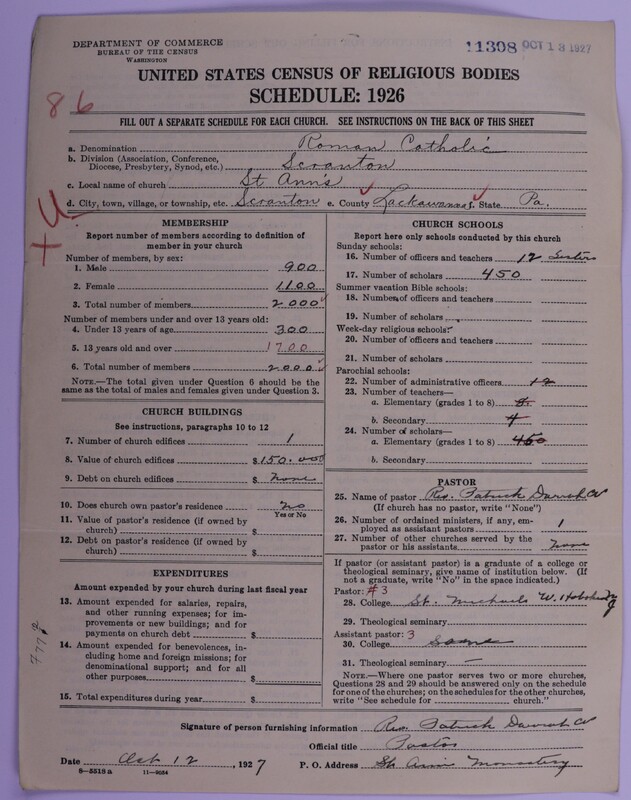 DEPARTMENT OF COMMERCE
BUREAU OF THE CENSUS
WASHINGTON
11308 OCT 13 1927
UNITED STATES CENSUS OF RELIGIOUS BODIES
SCHEDULE: 1926
86
FILL OUT A SEPARATE SCHEDULE FOR EACH CHURCH. SEE INSTRUCTIONS ON THE BACK OF THIS SHEET
a. Denomination Roman Catholic
b. Division (Association, Conference, Diocese, Presbytery, Synod, etc.) Scranton
c. Local name of church St Ann's
d. City, town, village, or township, etc. Scranton e. County Lackawanna f. State Pa.
MEMBERSHIP
Report number of members according to definition of
member in your church
Number of members, by sex:
1. Male 900
2. Female 1100
3. Total number of members 2000
Number of members under and over 13 years old:
4. Under 13 years of age 300
5. 13 years old and over 1700
6. Total number of members 2000
NOTE.—The total given under Question 6 should be the
same as the total of males and females given under Question 3.
CHURCH BUILDINGS
See instructions, paragraphs 10 to 12
7. Number of church edifices 1
8. Value of church edifices $150.000
9. Debt on church edifices $ None
10. Does church own pastor's residence No
Yes or No
11. Value of pastor's residence (if owned by
church) $
12. Debt on pastor's residence (if owned by
church) $
EXPENDITURES
Amount expended by your church during last fiscal year
13. Amount expended for salaries, repairs,
and other running expenses; for im-
provements or new buildings; and for
payments on church debt $
14. Amount expended for benevolences, in-
cluding home and foreign missions; for
denominational support; and for all
other purposes $
15. Total expenditures during year $
CHURCH SCHOOLS
Report here only schools conducted by this church
Sunday schools:
16. Number of officers and teachers 12 Sisters
17. Number of scholars 450
Summer vacation Bible schools:
18. Number of officers and teachers
19. Number of scholars
Week-day religious schools:
20. Number of officers and teachers
21. Number of scholars
Parochial schools:
22. Number of administrative officers 12
23. Number of teachers—
a. Elementary (grades 1 to 8) 8
b. Secondary 4
24. Number of scholars—
a. Elementary (grades 1 to 8) 450
b. Secondary
PASTOR
25. Name of pastor Rev. Patrick
(If church has no pastor, write "None")
26. Number of ordained ministers, if any, em-
ployed as assistant pastors 1
27. Number of other churches served by the
pastor or his assistants None
If pastor (or assistant pastor) is a graduate of a college or
theological seminary, give name of institution below. (If
not a graduate, write "No" in the space indicated.)
Pastor: #3
28. College St. Michaels W. Hoboken NJ
29. Theological seminary
Assistant pastor: 3
30. College Same
31. Theological seminary —
NOTE.—Where one pastor serves two or more churches,
Questions 28 and 29 should be answered only on the schedule
for one of the churches; on the schedules for the other churches,
write "See schedule for church."
Signature of person furnishing information Rev. Patrick
Official title Pastor
Date Oct 12, 1927 P. O. Address St Anns Monastery
8—5518 a 11—9034